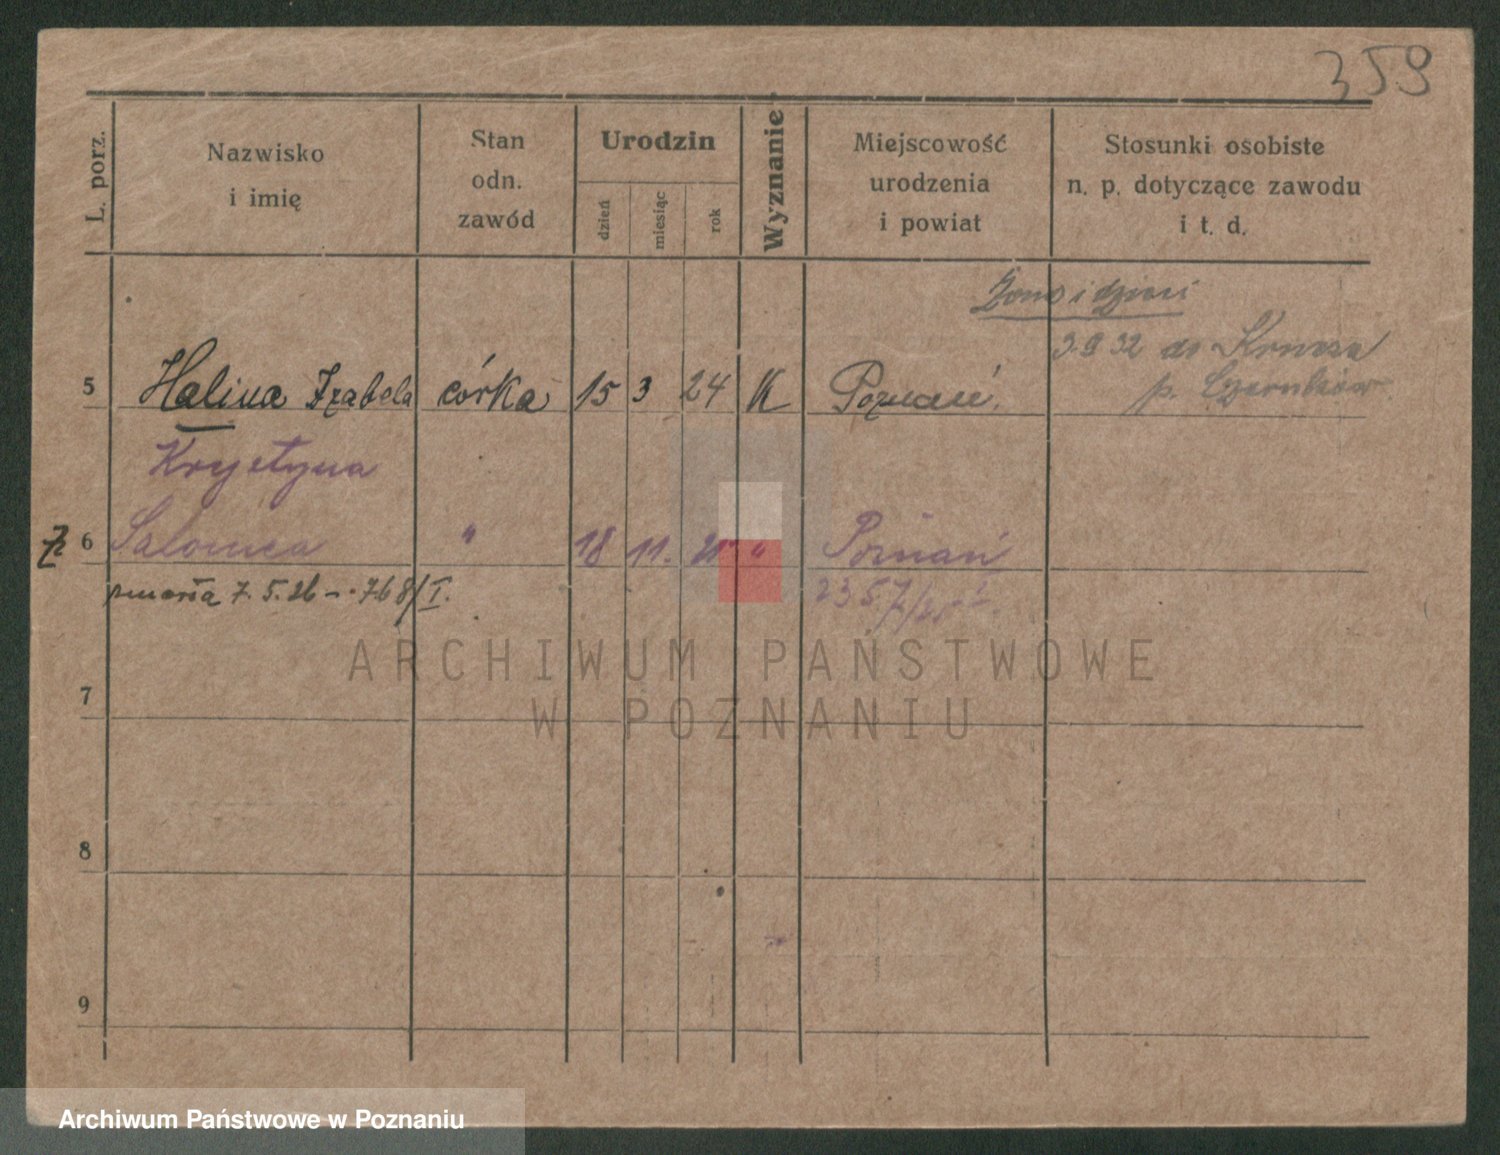 359
L. porz.
Nazwisko
i imię
Stan
odn.
zawód
Urodzin
dzień
miesiąc
rok
Wyznanie
Miejscowość
urodzenia
i powiat
Stosunki osobiste
n. p. dotyczące zawodu
i t. d.
Żona i dzieci
3.9 32 do
p. Czarnków
5 Halina Izabela córka 15 3 24 K Poznań.
Krystyna
6 Salomea " 18 11. " Poznań
zmarła 7.5.26 – 768/I.
7
8
9
ARCHIWUM PAŃSTWOWE
W POZNANIU
Archiwum Państwowe w Poznaniu